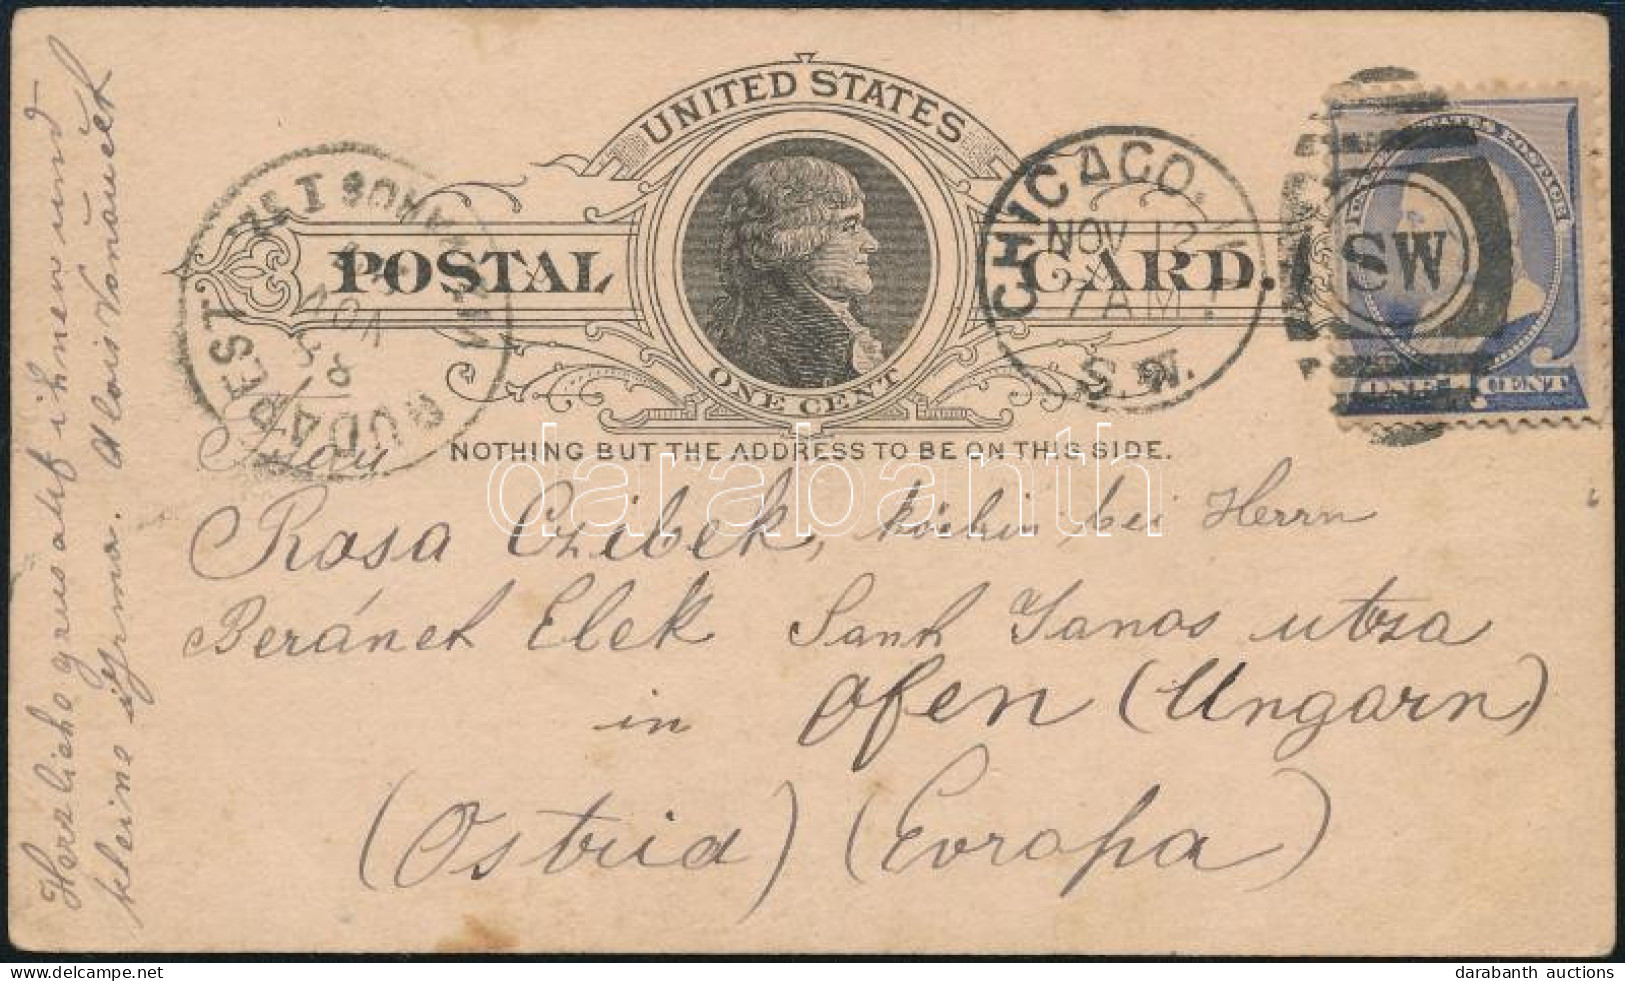 UNITED STATES
POSTAL CARD.
ONE CENT
NOTHING BUT THE ADDRESS TO BE ON THIS SIDE.
CHICAGO.
NOV 12
7 AM
S.W.
SW
ONE 1 CENT
BUDAPEST
NOV
darabanth
Rosa Czibek, köchin, bei Herrn
Beránek Elek Sankt Janos utza
in Ofen (Ungarn)
(Ostrid) (Evropa)
Herzliche grus auf ihnen und
kleine Yrma. Alois
delcampe.net
darabanth auctions